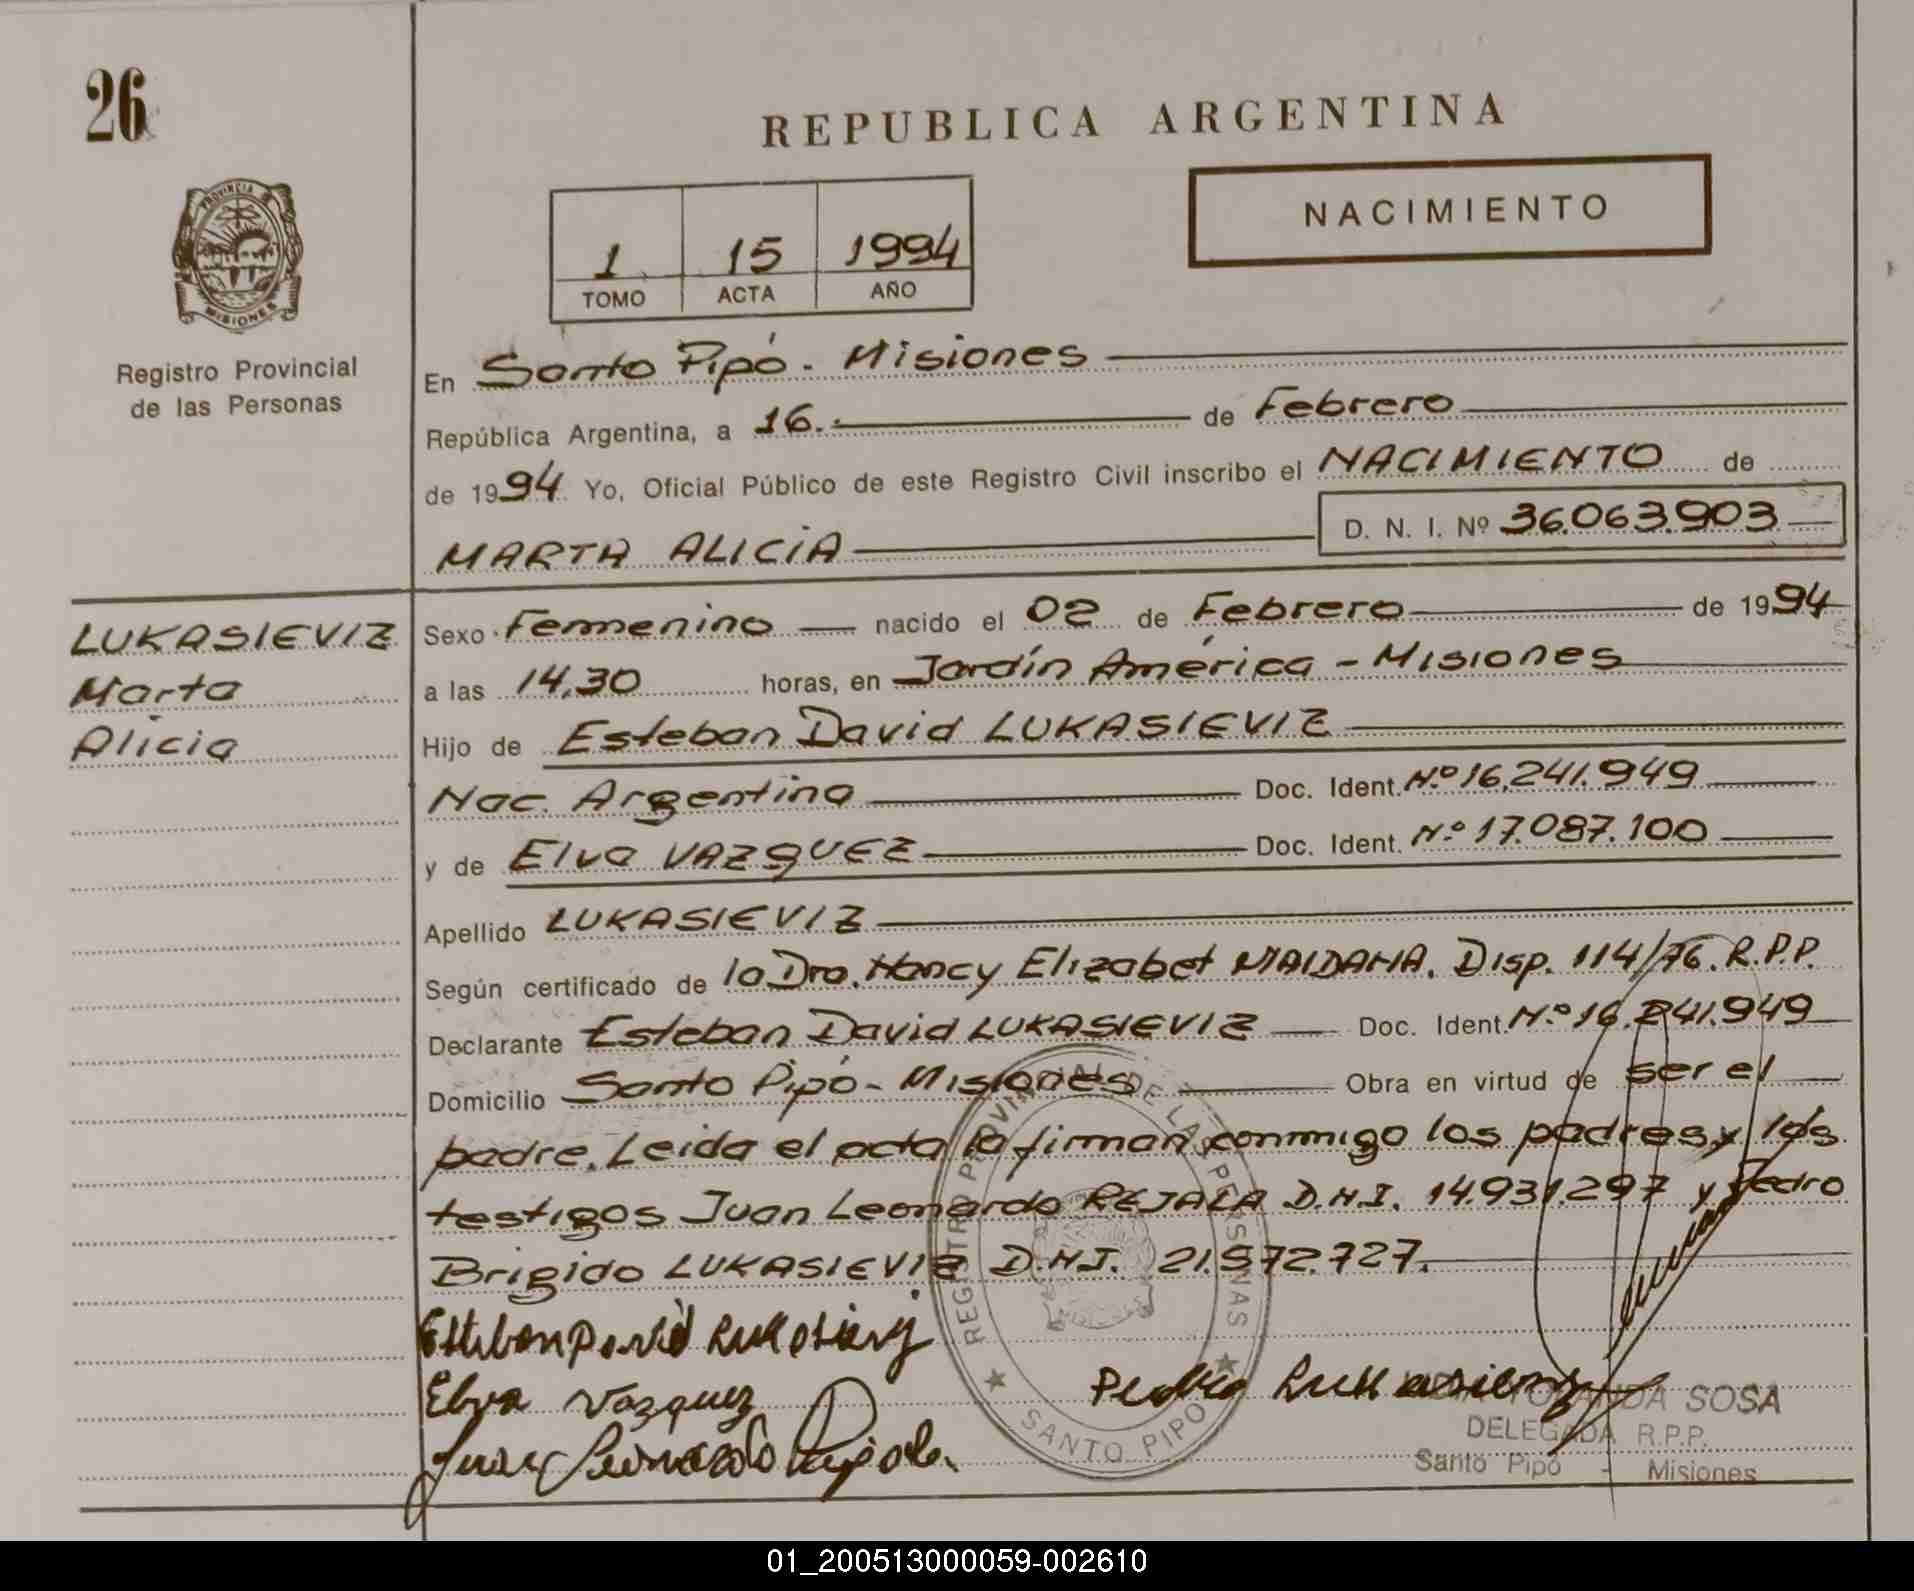 26
REPUBLICA ARGENTINA
NACIMIENTO
1 15 1994
TOMO ACTA AÑO
PROVINCIA
MISIONES
Registro Provincial
de las Personas
En Santo Pipó - Misiones
República Argentina, a 16. de Febrero
de 1994 Yo, Oficial Público de este Registro Civil inscribo el NACIMIENTO de
MARTA ALICIA D. N. I. Nº 36.063.903
LUKASIEVIZ
Marta
Alicia
Sexo Femenino nacido el 02 de Febrero de 1994
a las 14,30 horas, en Jardín América - Misiones
Hijo de Esteban David LUKASIEVIZ
Nac. Argentina Doc. Ident. Nº 16.241.949
y de Elva VAZQUEZ Doc. Ident. Nº 17.087.100
Apellido LUKASIEVIZ
Según certificado de la Dra. Nancy Elizabet MAIDANA. Disp. 114/76. R.P.P.
Declarante Esteban David LUKASIEVIZ Doc. Ident. Nº 16.241.949
Domicilio Santo Pipó - Misiones Obra en virtud de ser el
padre. Leida el acta la firman conmigo los padres y los
testigos Juan Leonardo REJALA D.N.I. 14.931.297 y Pedro
Brigido LUKASIEVIZ D.N.I. 21.572.727.
REGISTRO PROVINCIAL DE LAS PERSONAS
SANTO PIPO
Esteban David
Elva Vazquez
Pedro
Juan Leonardo
SOSA
DELEGADA R.P.P.
Santo Pipó - Misiones
01_200513000059-002610